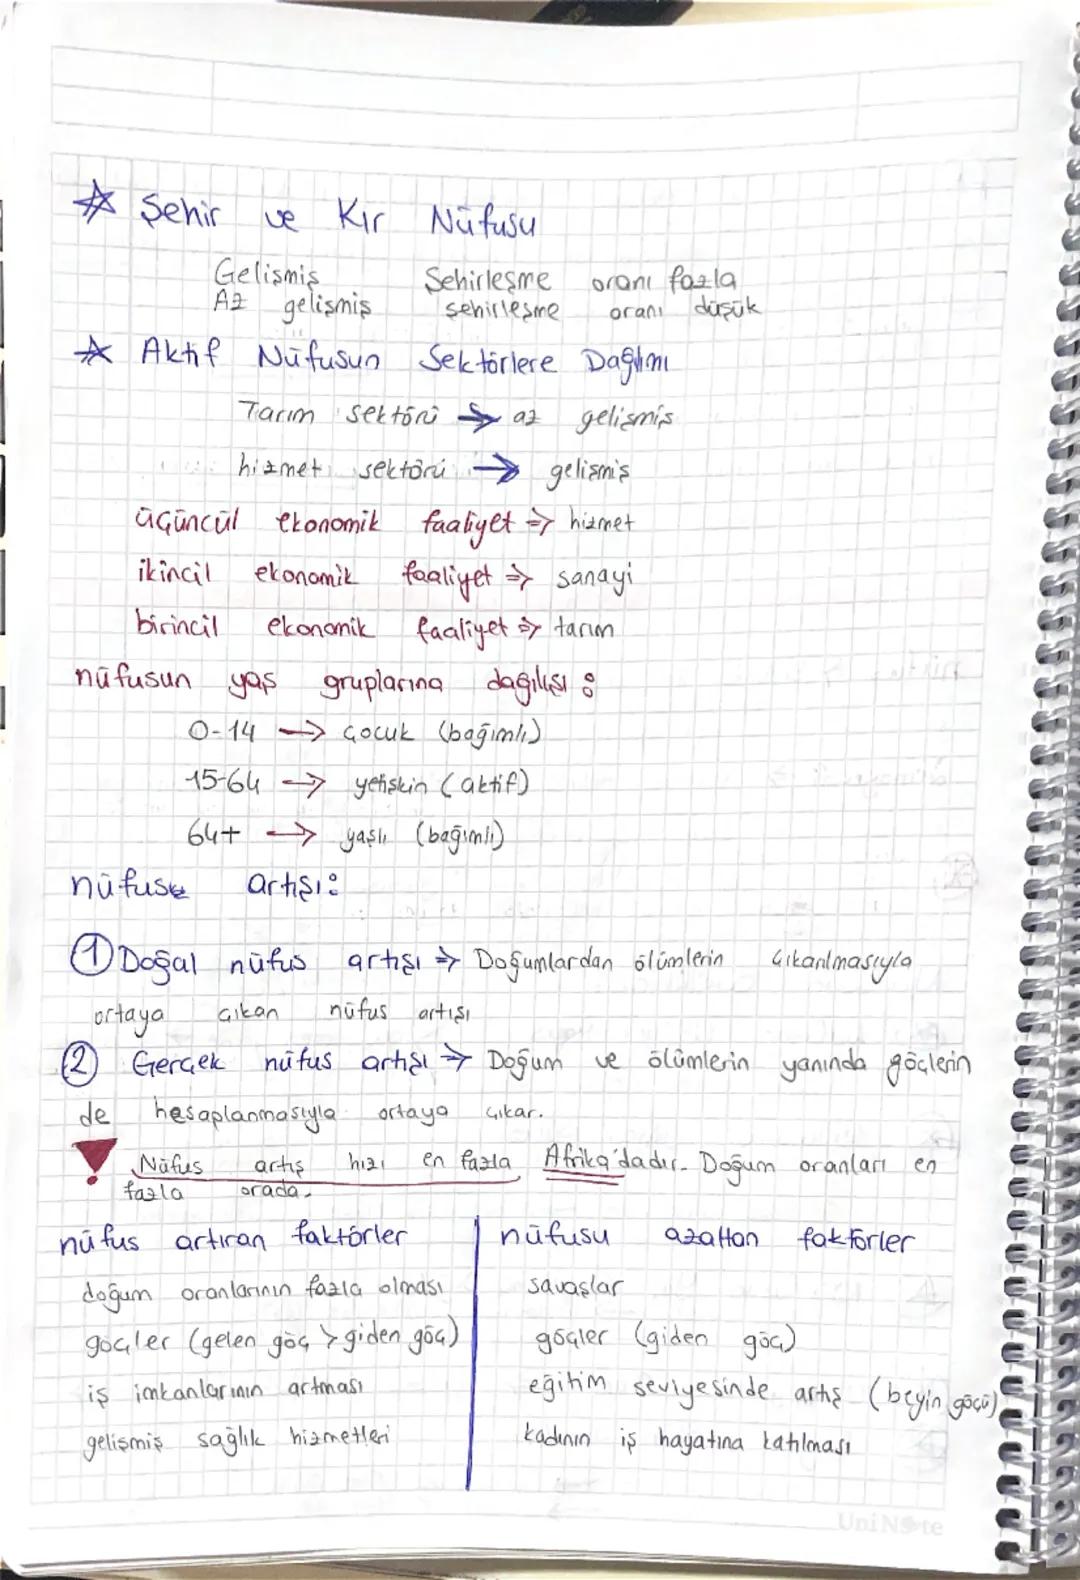 ☆ Şehir ve Kır Nüfusu
Gelişmiş Şehirleşme oranı fazla
Az gelişmiş şehirleşme oranı düşük
☆ Aktif Nüfusun Sektörlere Dağılımı
Tarım sektörü → az gelişmiş
hizmet sektörü → gelişmiş
üçüncül ekonomik faaliyet ⇒ hizmet
ikincil ekonomik faaliyet ⇒ sanayi
birincil ekonomik faaliyet ⇒ tarım
nüfusun yaş gruplarına dağılışı:
0-14 → çocuk (bağımlı)
15-64 → yetişkin (aktif)
64+ → yaşlı (bağımlı)
nüfus artışı:
① Doğal nüfus artışı ⇒ Doğumlardan ölümlerin çıkarılmasıyla
ortaya çıkan nüfus artışı
② Gerçek nüfus artışı ⇒ Doğum ve ölümlerin yanında göçlerin
de hesaplanmasıyla ortaya çıkar.
! Nüfus artış hızı en fazla Afrika'dadır. Doğum oranları en
fazla orada.
nüfus artıran faktörler
doğum oranlarının fazla olması
göçler (gelen göç > giden göç)
iş imkanlarının artması
gelişmiş sağlık hizmetleri
nüfusu azaltan faktörler
savaşlar
göçler (giden göç)
eğitim seviyesinde artış (beyin göçü)
kadının iş hayatına katılması
UniNote